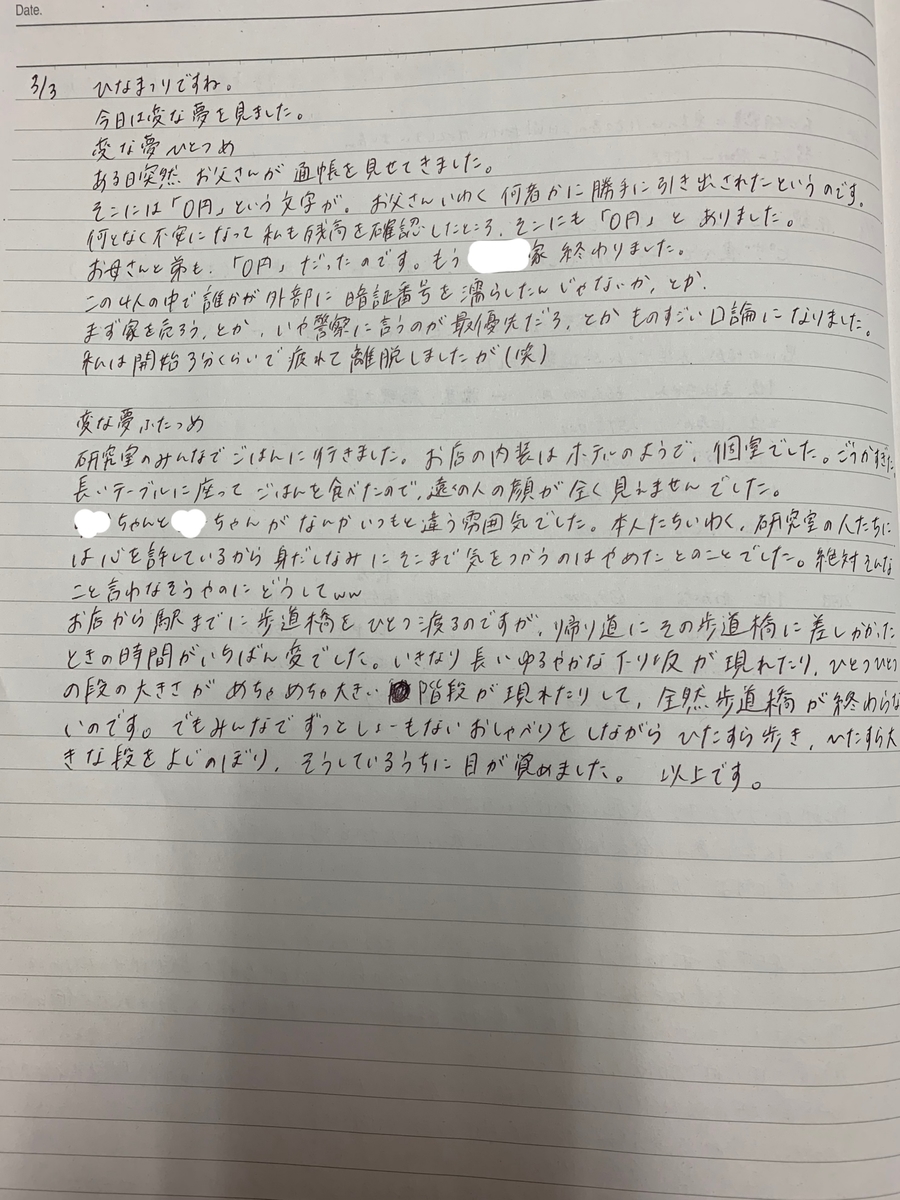 Date.
3/3 ひなまつりですね。
今日は変な夢を見ました。
変な夢ひとつめ
ある日突然 お父さんが 通帳を見せてきました。
そこには「0円」という文字が。 お父さんいわく 何者かに勝手に引き出されたというのです。
何となく不安になって 私も残高を確認したところ、そこにも「0円」と ありました。
お母さんと弟も、「0円」だったのです。もう 家 終わりました。
この4人の中で誰かが外部に暗証番号を濡らしたんじゃないか、とか、
まず家を売ろう、とか、いや警察に言うのが最優先だろ、とか ものすごい口論になりました。
私は開始3分くらいで疲れて離脱しましたが(笑)
変な夢ふたつめ
研究室のみんなでごはんに行きました。お店の内装はホテルのようで、個室でした。ごうかすぎた。
長いテーブルに座って ごはんを食べたので、遠くの人の顔が全く見えませんでした。
ちゃんと ちゃんがなんかいつもと違う雰囲気でした。本人たちいわく、研究室の人たちに
は心を許しているから身だしなみにそこまで気をつかうのはやめたとのことでした。絶対そんな
こと言わなそうやのにどうしてww
お店から駅までに歩道橋をひとつ渡るのですが、帰り道にその歩道橋に差しかかった
ときの時間がいちばん変でした。いきなり長いゆるやかな下り坂が現れたり、ひとつひとつ
の段の大きさがめちゃめちゃ大きい 階段が現れたりして、全然歩道橋が終わらな
いのです。でもみんなでずっとしょーもないおしゃべりをしながら ひたすら歩き、ひたすら大
きな段をよじのぼり、そうしているうちに目が覚めました。 以上です。